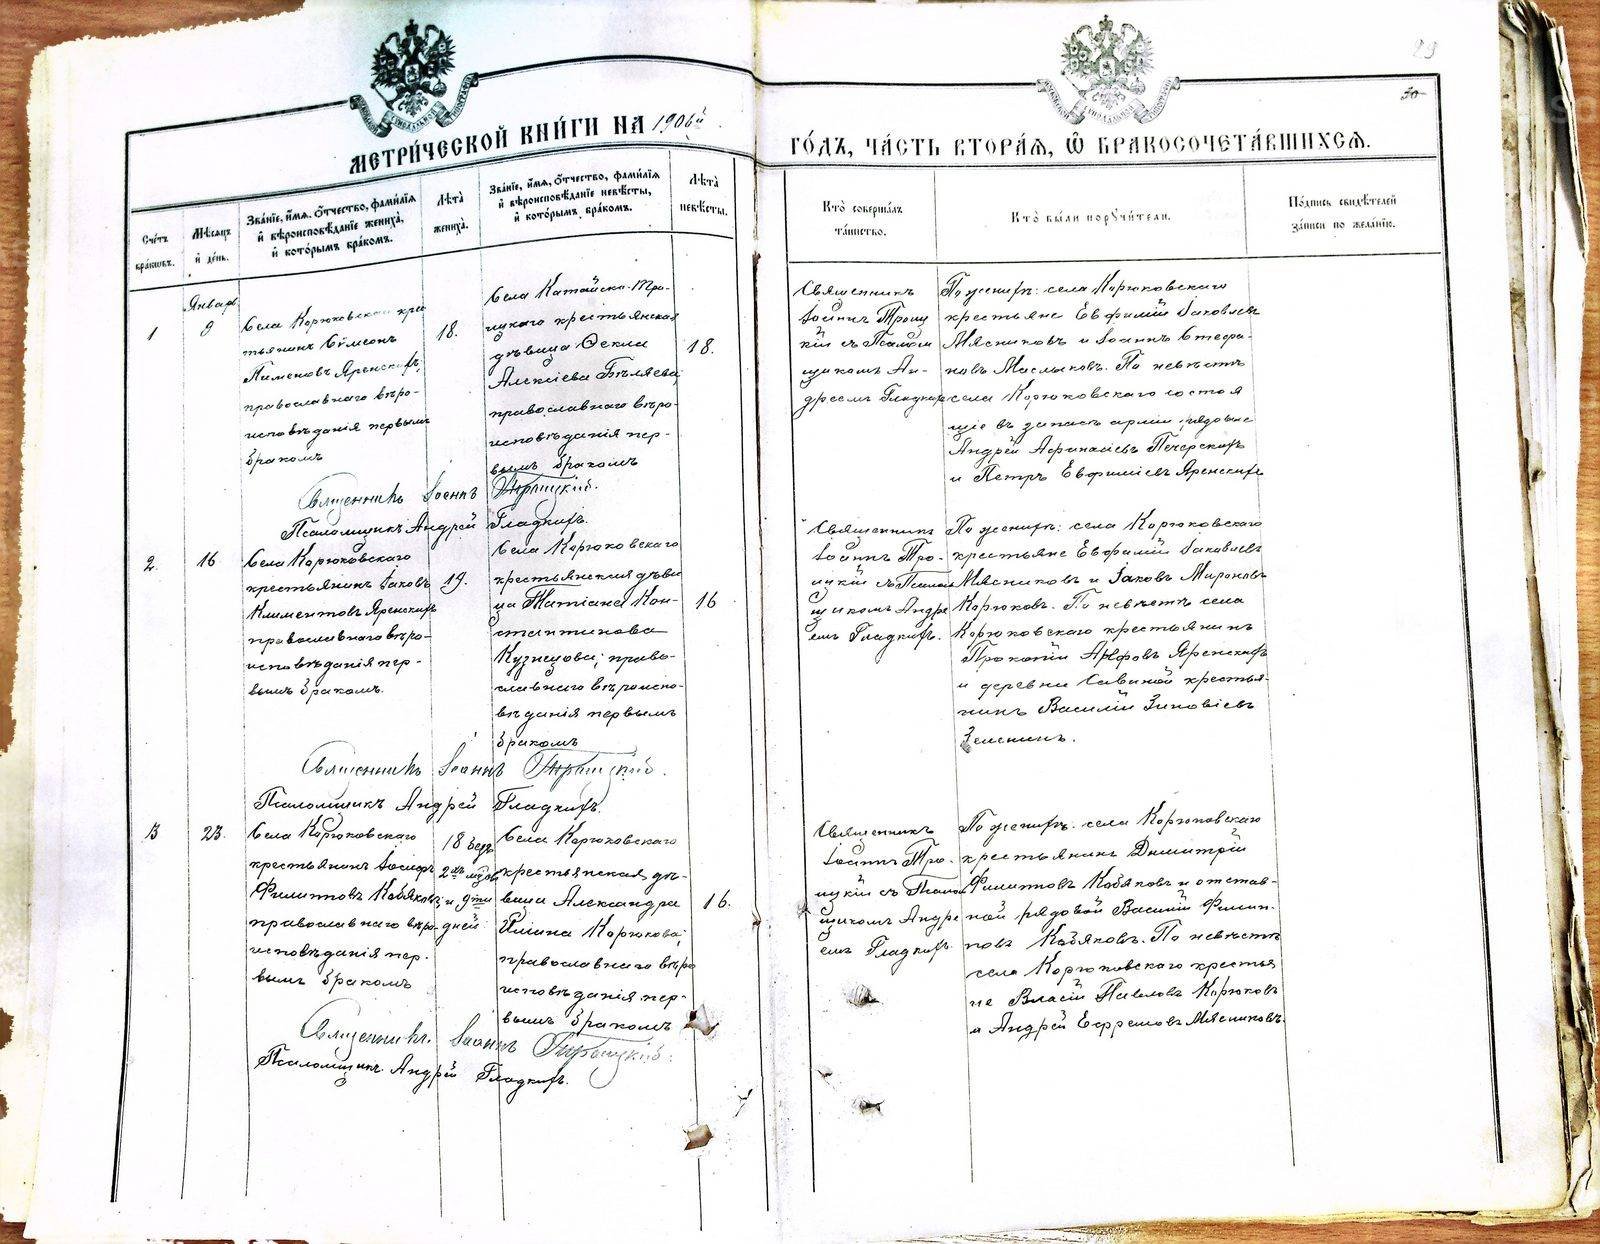 29
30
МЕТРИ́ЧЕСКОЙ КНИ́ГИ НА 1906й
ГО́ДЪ, ЧА́СТЬ ВТОРА́Я, Ѡ БРАКОСОЧЕТА́ВШИХСЯ.
Сче́тъ бра́ковъ.
Мѣ́сяцъ и де́нь.
Зва́нїе, и́мя, о́тчество, фами́лїя
и вѣроисповѣ́данїе жениха̀,
и кото́рымъ бра́комъ.
Лѣ́та
жениха̀.
Зва́нїе, и́мя, о́тчество, фами́лїя
и вѣроисповѣ́данїе невѣ́сты,
и кото́рымъ бра́комъ.
Лѣ́та
невѣ́сты.
Кто̀ соверша́лъ
та́инство.
Кто̀ бы́ли поручи́тели.
По́дпись свидѣ́телей
за́писи по жела́нїю.
1
Январ.
9
Села Корюковскаго кре
стьянинъ Сѵмеонъ
Пименовъ Яренскихъ,
православнаго вѣро-
исповѣданія первымъ
бракомъ
18.
Села Катайско-Тро-
ицкаго крестьянская
дѣвица Ѳекла
Алексіева Бѣляева,
православнаго вѣро-
исповѣданія пер-
вымъ бракомъ
18.
Священникъ
Іоаннъ Троиц
кій съ Псалом
щикомъ Ан-
дреемъ Гладких
По женихѣ: села Корюковскаго
крестьяне Евфимій Іаковлевъ
Мясниковъ и Іоаннъ Стефа-
новъ Маслыковъ. По невѣстѣ
села Корюковскаго состоя
щіе въ запасѣ арміи рядовые
Андрей Афанасіевъ Печерскихъ
и Петръ Евфиміевъ Яренскихъ
Священникъ Іоаннъ Троицкій.
Псаломщикъ Андрей Гладкихъ.
2.
16
Села Корюковскаго
крестьянинъ Іаковъ
Климентовъ Яренскихъ
православнаго вѣро-
исповѣданія пер-
вымъ бракомъ.
19.
Села Корюковскаго
крестьянская дѣви
ца Татіана Кон-
стантинова
Кузнецова; право-
славнаго вѣроиспо-
вѣданія первымъ
бракомъ
16
Священникъ
Іоаннъ Тро-
ицкій съ Псалом
щикомъ Андре
емъ Гладкихъ.
По женихѣ: села Корюковскаго
крестьяне Евфимій Іаковлевъ
Мясниковъ и Іаковъ Мироновъ
Корюковъ. По невѣстѣ села
Корюковскаго крестьянинъ
Прокопій Яренскихъ
и деревни Савиной крестья-
нинъ Василій Зиновіевъ
Зеленинъ.
Священникъ Іоаннъ Троицкій.
Псаломщикъ Андрей Гладкихъ.
3
23.
Села Корюковскаго
крестьянинъ Іосифъ
Филипповъ Кобяковъ
православнаго вѣро-
исповѣданія пер-
вымъ бракомъ
18 безъ
2хъ мѣс.
и 9ти
дней
Села Корюковскаго
крестьянская дѣ-
вица Александра
Ильина Корюкова;
православнаго вѣро
исповѣданія пер-
вымъ бракомъ
16.
Священникъ
Іоаннъ Тро-
ицкій съ Псалом
щикомъ Андре
емъ Гладкихъ.
По женихѣ: села Корюковскаго
крестьянинъ Димитрій
Филипповъ Кобяковъ и отстав-
ной рядовой Василій Филип-
повъ Кобяковъ. По невѣстѣ
села Корюковскаго крестья
не Власій Павловъ Корюковъ
и Андрей Ефремовъ Мясниковъ.
Священникъ. Іоаннъ Троицкій.
Псаломщикъ Андрей Гладкихъ.